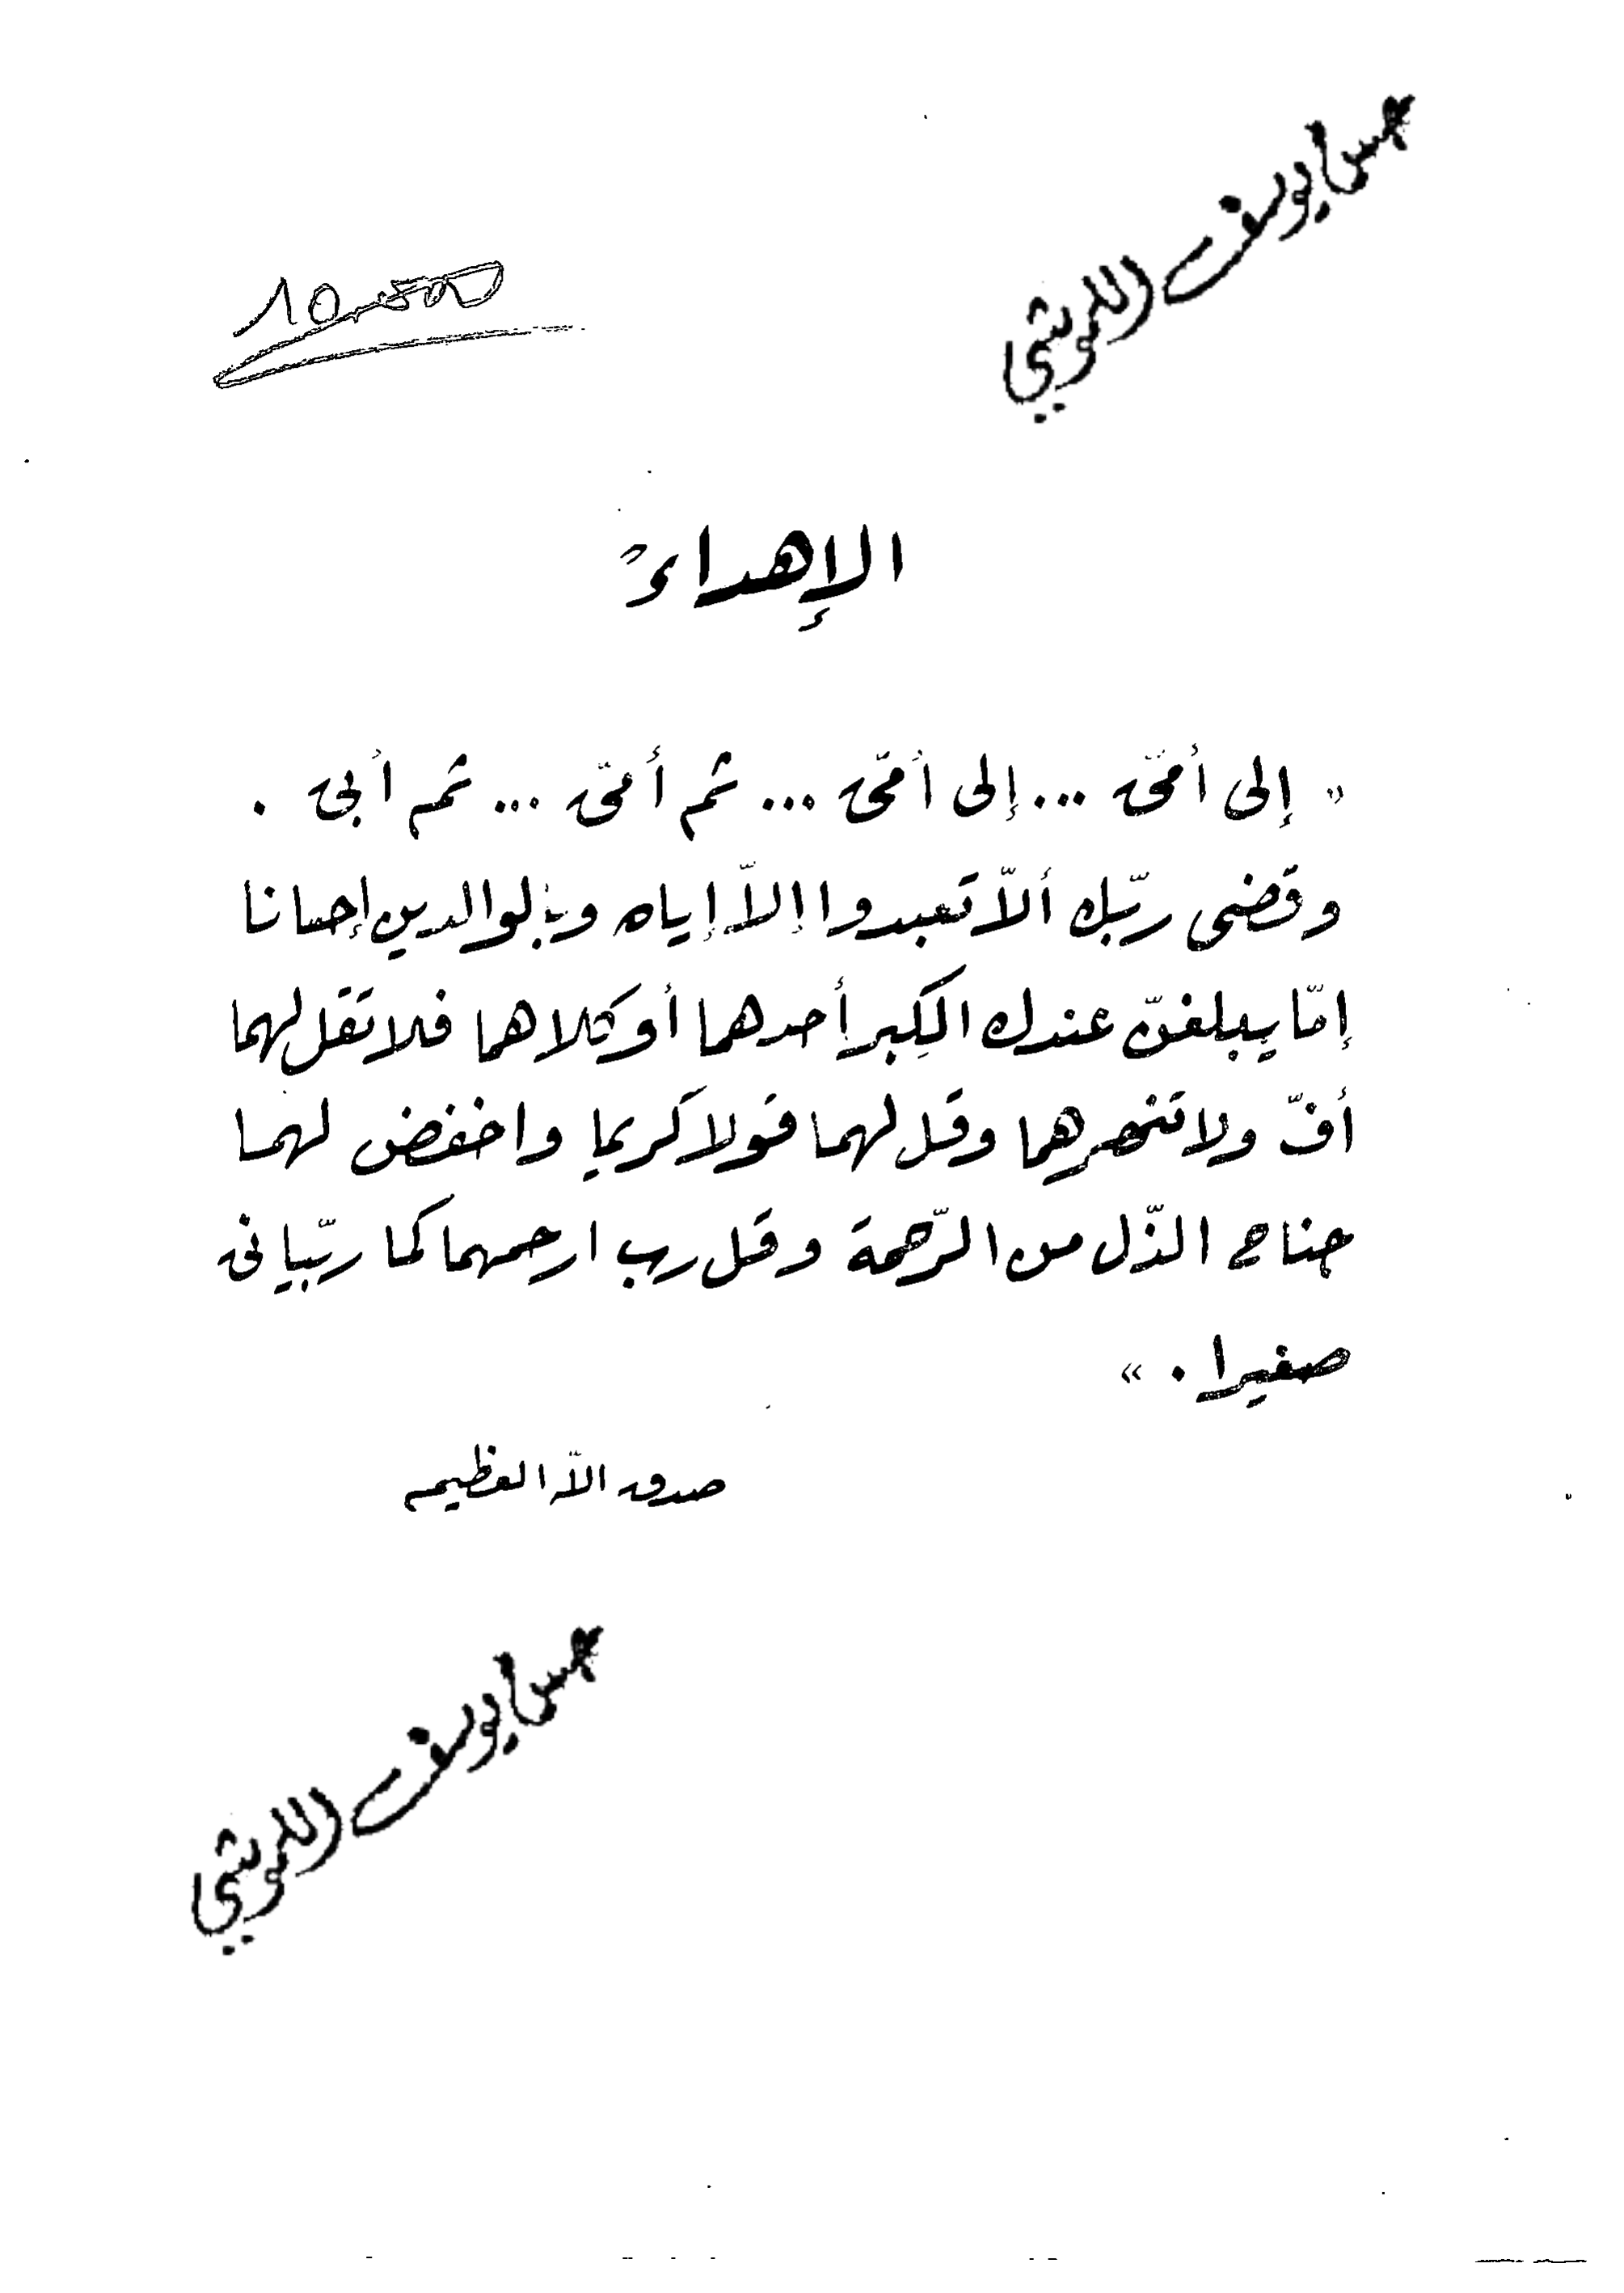 يوسف
10.500
الإهداء
" إلى أمّى ... إلى أمّى ... ثم أمّى ... ثم أبى .
وقضى ربّك ألاّ تعبدوا إلاّ إياه وبالوالدين إحسانا
إمّا يبلغنّ عندك الكِبر أحدهما أو كلاهما فلا تقل لهما
أفّ ولا تنهرهما وقل لهما قولا كريما واخفض لهما
جناح الذّل من الرّحمة وقل رب ارحمهما كما ربّيانى
صغيرا . »
صدق اللّه العظيم
يوسف